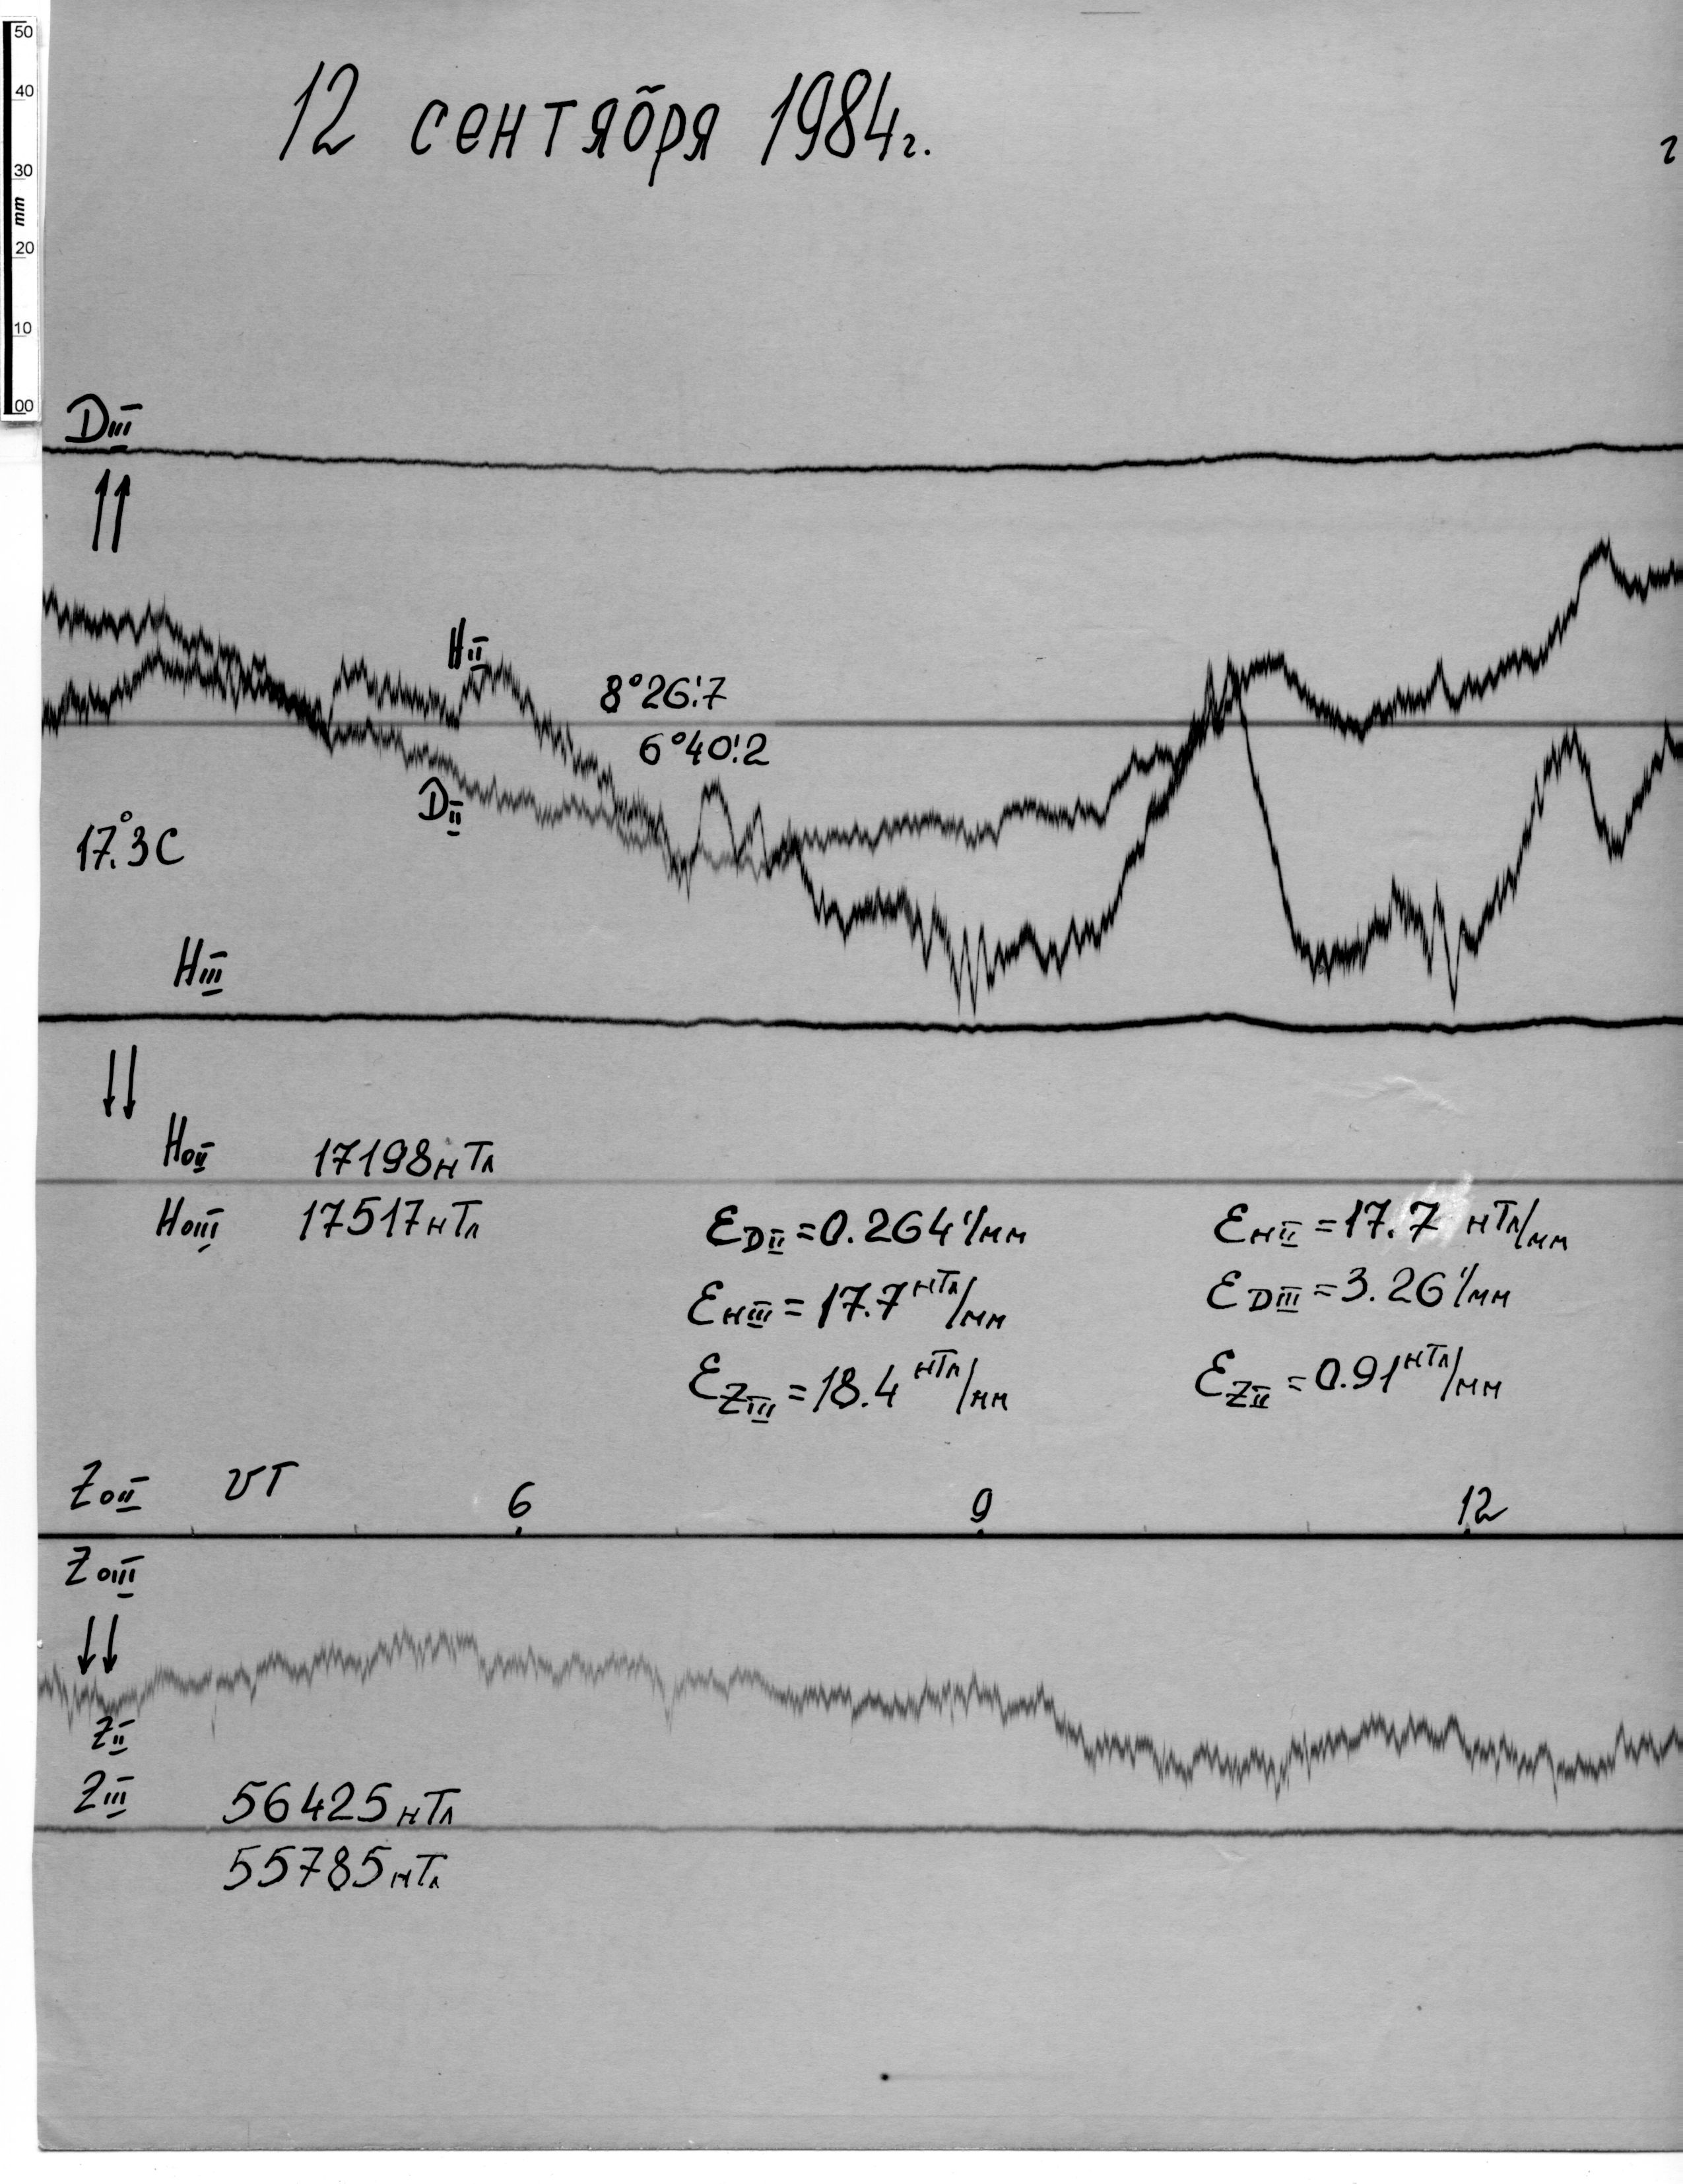 50
40
30
mm
20
10
00
12 сентября 1984г.
г
DIII
HII
8°26!7
6°40!2
DII
17.°3С
HIII
HoII 17198нТл
HoIII 17517нТл
ƐDII=0.264'/мм ƐHII=17.7 нТл/мм
ƐHIII=17.7 нТл/мм ƐDIII=3.26'/мм
ƐZIII=18.4 нТл/мм ƐZII=0.91 нТл/мм
ZoII UT 6 9 12
ZoIII
ZII
ZIII 56425нТл
55785нТл